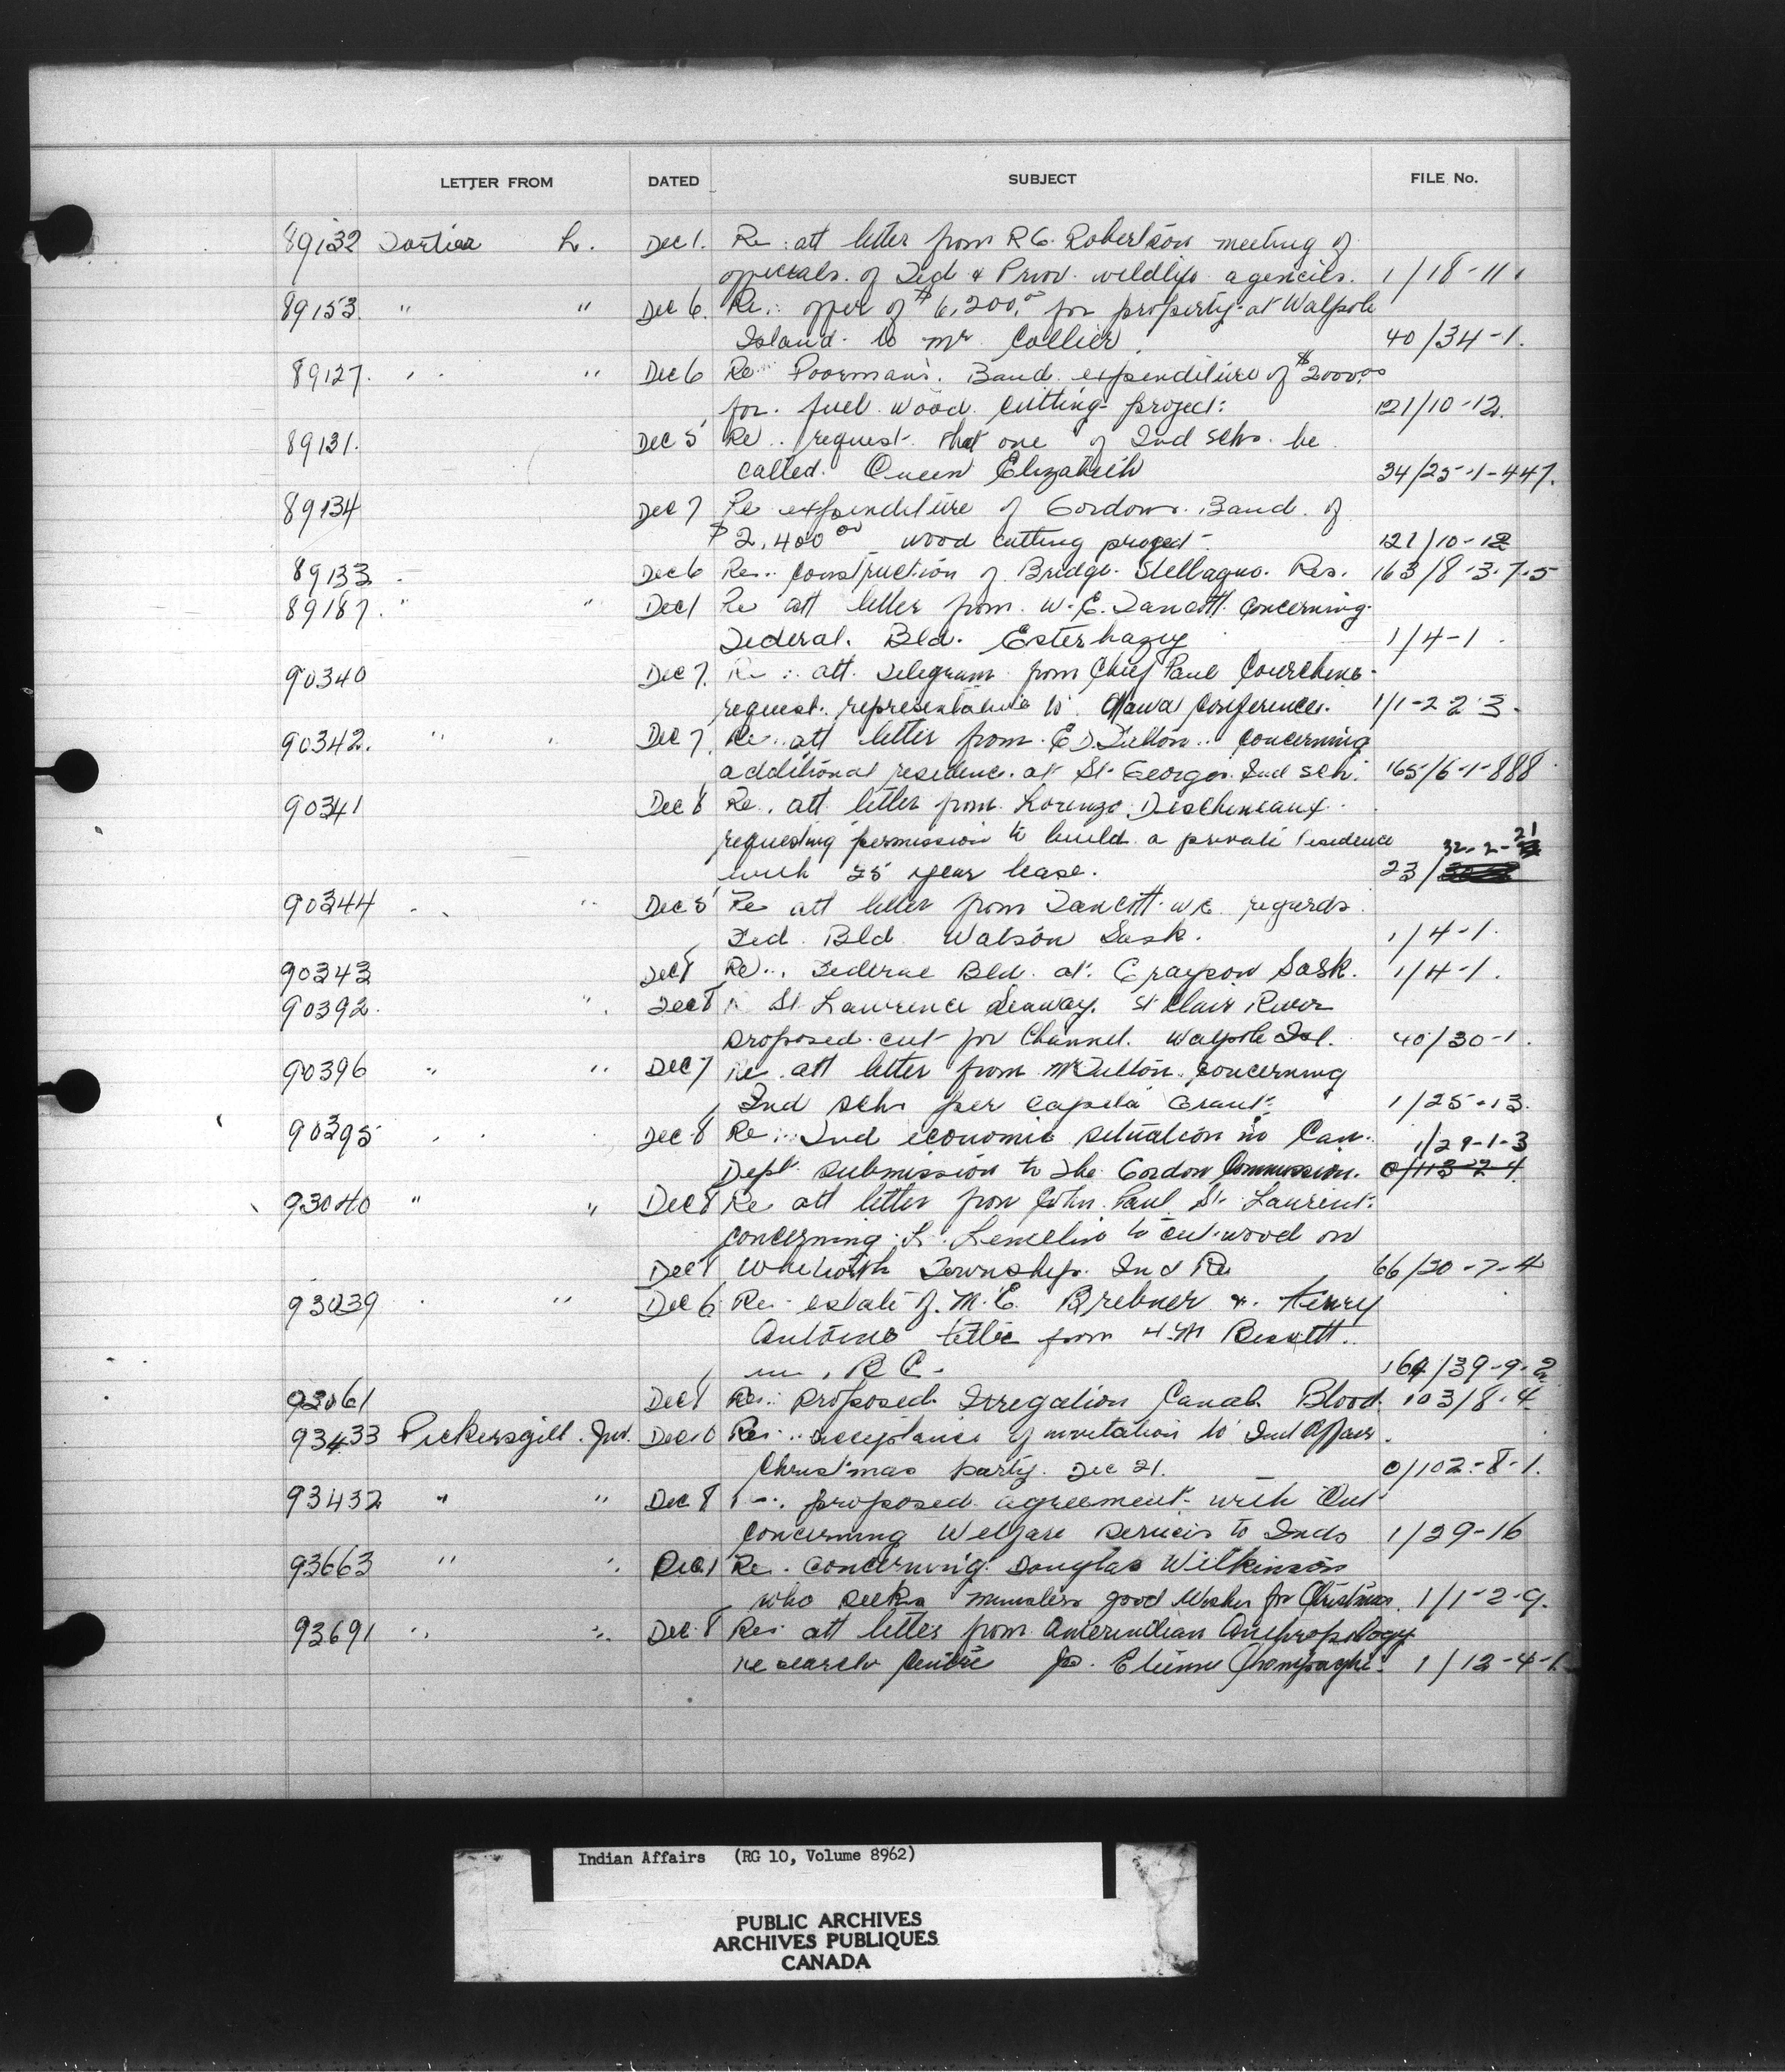 LETTER FROM DATED SUBJECT FILE No.
89132 Fortier L. Dec 1. Re: att letter from R G. Robertson meeting of
officials of Fed & Prov. wildlife agencies. 1/18-11.
89153 " " Dec 6. Re: offer of $6,200.00 for property at Walpole
Island to Mr. Collier. 40/34-1.
89127. " " Dec 6 Re Poorman's Band expenditure of $2000.00
for fuel wood cutting project: 121/10-12.
89131. Dec 5 Re.. request that one of Ind schs. be
called. Queen Elizabeth 34/25-1-447.
89134 Dec 7 Re expenditure of Gordons. Band. of
$2,400.00 wood cutting project- 121/10-12
89133 Dec 6 Re.. construction of Bridge. Stellaquo. Res. 163/8-3-7-5
89187. " " Dec 1 Re att letter from. W. E. Tancott. concerning
Federal. Bld. Esterhazy 1/4-1.
90340 Dec 7. Re: att. Telegram from Chief Paul Courchene-
request. representative to Ottawa Conference. 1/1-2-2-3.
90342. " Dec 7. Re. att letter from E D. Fulton.. concerning
additional residence. at St. Georges. Ind sch. 165/6-1-888
90341 Dec 8 Re. att letter from Lorenzo Descheneaux
requesting permission to build a private residence 32-2-21
with 25 year lease. 23/
90344 " Dec 5 Re att letter from Tancott W E regards
Fed. Bld. Watson Sask. 1/4-1.
90343 Dec 8 Re.. Federal Bld. at. Grayson Sask. 1/4-1.
90392. " Dec 8 St Lawrence Seaway. St Clair River
proposed cut for Channel. Walpole Isl. 40/30-1.
90396 " " Dec 7 Re. att letter from Mr Fulton. concerning
Ind schs per capita Grant: 1/25-13.
90395 Dec 8 Re: Ind economic situation in Can. 1/29-1-3
Dept. submission to the Gordon Commission. 0/113-2-4
93040 " " Dec 8 Re att letter from John Paul St. Laurent.
concerning L. Lemelin to cut wood on
Dec 8 Whitworth Township. Ind Re 66/20-7-4
93039 " Dec 6 Re- estate of. M. E. Brebner & Henry
Antoine letter from H. M Bennett.
B C. 164/39-9-2
93061 Dec 8 Re: proposed Irregation Canal Blood. 103/8-4
93433 Pickersgill. Jw. Dec 10 Re: acceptance of invitation to Ind Affairs
Christmas party. Dec 21. 0/102-8-1.
93432 " " Dec 8 proposed agreement with Ont
concerning Welfare services to Inds 1/29-16
93663 " " Dec 1 Re. concerning Douglas Wilkinson
who seeks ministers good wishes for Christmas. 1/1-2-9.
93691 " " Dec 8 Re: att letter from Amerindian Anthropology
research centre Jo. Etienne Champagne. 1/12-4-1
Indian Affairs (RG 10, Volume 8962)
PUBLIC ARCHIVES
ARCHIVES PUBLIQUES
CANADA